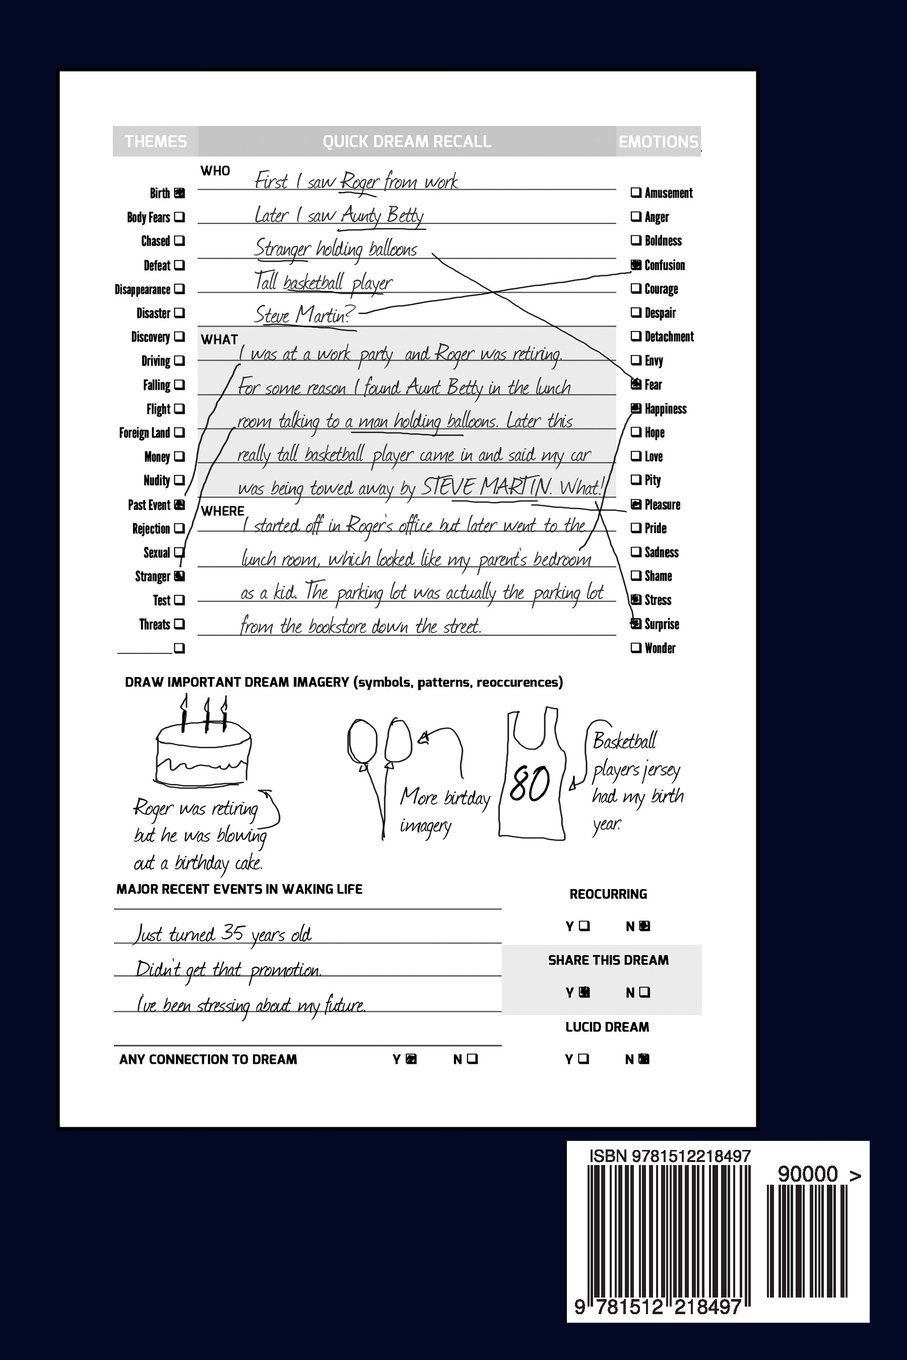 THEMES QUICK DREAM RECALL EMOTIONS
WHO
First I saw Roger from work
Later I saw Aunty Betty
Stranger holding balloons
Tall basketball player
Steve Martin?
WHAT
I was at a work party and Roger was retiring.
For some reason I found Aunt Betty in the lunch
room talking to a man holding balloons. Later this
really tall basketball player came in and said my car
was being towed away by STEVE MARTIN. What!
WHERE
I started off in Roger's office but later went to the
lunch room, which looked like my parent's bedroom
as a kid. The parking lot was actually the parking lot
from the bookstore down the street.
Birth
Body Fears
Chased
Defeat
Disappearance
Disaster
Discovery
Driving
Falling
Flight
Foreign Land
Money
Nudity
Past Event
Rejection
Sexual
Stranger
Test
Threats
Amusement
Anger
Boldness
Confusion
Courage
Despair
Detachment
Envy
Fear
Happiness
Hope
Love
Pity
Pleasure
Pride
Sadness
Shame
Stress
Surprise
Wonder
DRAW IMPORTANT DREAM IMAGERY (symbols, patterns, reoccurences)
Roger was retiring
but he was blowing
out a birthday cake.
More birtday
imagery
80
Basketball
players jersey
had my birth
year.
MAJOR RECENT EVENTS IN WAKING LIFE
Just turned 35 years old
Didn't get that promotion.
I've been stressing about my future.
ANY CONNECTION TO DREAM Y N
REOCURRING
Y N
SHARE THIS DREAM
Y N
LUCID DREAM
Y N
ISBN 9781512218497
90000 >
9 781512 218497